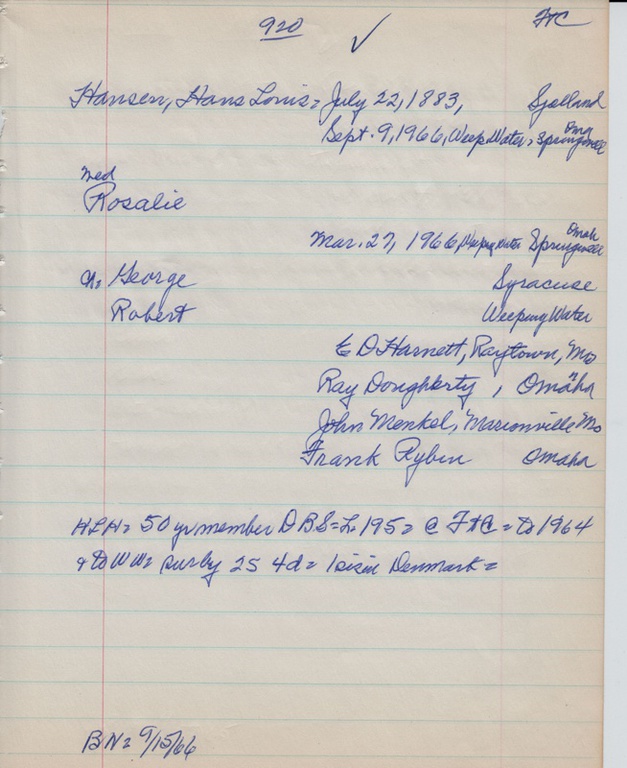 920 ✓ FtC
Hansen, Hans Louis = July 22, 1883, Sjelland
Sept. 9, 1966, Weep Water = Springwell Oma
Med
Rosalie
Mar. 27, 1966, Weeping Water Springwell Omah
Ch: George Syracuse
Robert Weeping Water
E D Harnett, Raytown, Mo
Ray Dougherty, Omaha
John Menkel, Marionville Mo
Frank Rybin Omaha
HLH = 50 yr member DBS = L 195 = C FtC = to 1964
& to WW = surby 2S 4d = 1 sis in Denmark =
BN = 9/15/66